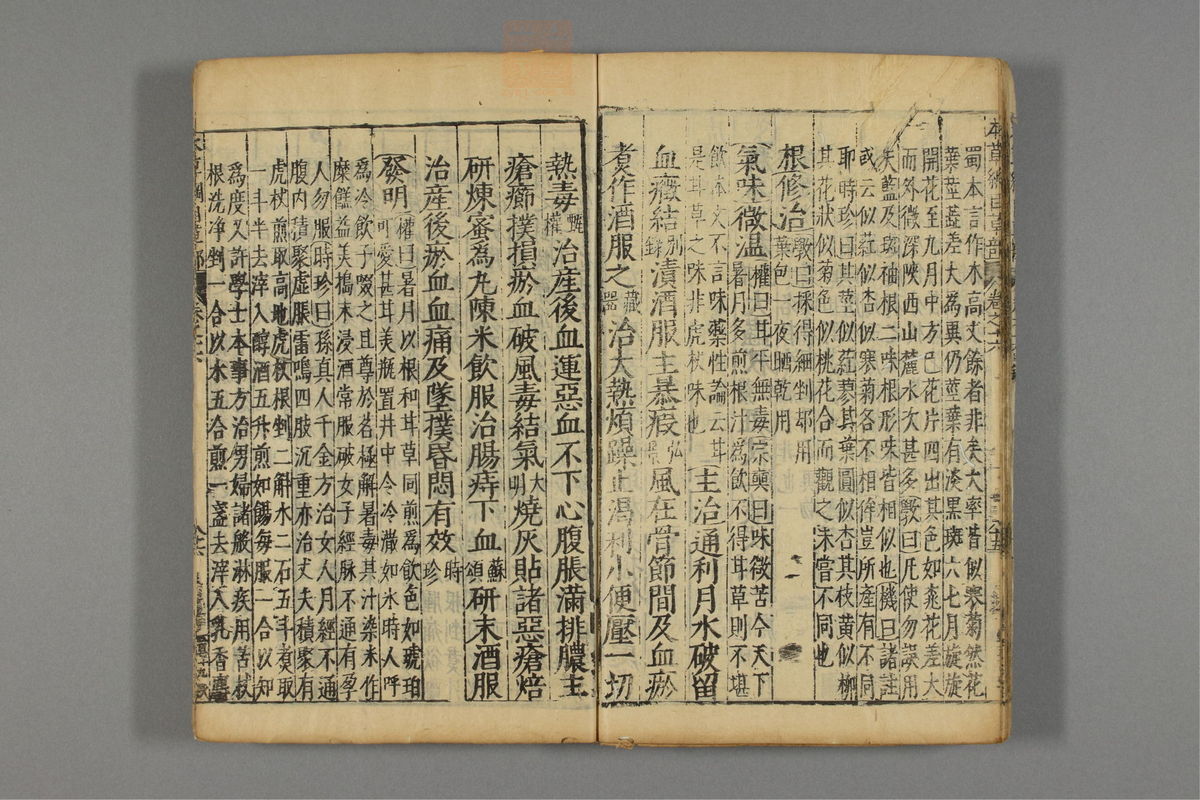 蜀本言作木高丈餘者非矣大率皆似寒菊然花
葉莖蕊差大為異仍莖葉有淡黑斑六七月旋旋
開花至九月中方已花片四出其色如桃花差大
而外微深陝西山麓水次甚多斅曰凡使勿誤用
天藍及斑袖根二味根形味皆相似也機曰諸註
或云似葒似杏似寒菊各不相侔豈所產有不同
耶時珍曰其莖似葒蓼其葉圓似杏其枝黄似柳
其花狀似菊色似桃花合而觀之未嘗不同也
根修治斅曰採得細剉却用
葉包一夜晒乾用
氣味微温權曰甘平無毒宗奭曰味微苦今天下
暑月多煎根汁為飲不得甘草則不堪
飲本文不言味藥性論云甘
是甘草之味非虎杖味也
主治通利月水破留
血癥結别錄漬酒服主暴瘕弘景風在骨節間及血瘀
煑作酒服之藏器治大熱煩躁止渴利小便壓一切
熱毒甄權治産後血運惡血不下心腹脹滿排膿主
瘡癤撲損瘀血破風毒結氣大明燒灰貼諸惡瘡焙
研煉蜜為丸陳米飲服治腸痔下血蘇頌研末酒服
治産後瘀血血痛及墜撲昏悶有效時珍
發明權曰暑月以根和甘草同煎為飲色如琥珀
可愛甚甘美瓶置井中令冷澈如冰時人呼
為冷飲子啜之且尊於茗極解暑毒其汁染米作
糜餻益美搗末浸酒常服破女子經脉不通有孕
人勿服時珍曰孫真人千金方治女人月經不通
腹内積聚虛脹雷鳴四肢沉重亦治丈夫積聚有
虎杖煎取高地虎杖根剉二斛水二石五斗煑取
一斗半去滓入醇酒五升煎如餳每服一合以知
為度又許學士本事方治男婦諸般淋疾用苦杖
根洗净剉一合以水五合煎一盞去滓入乳香麝